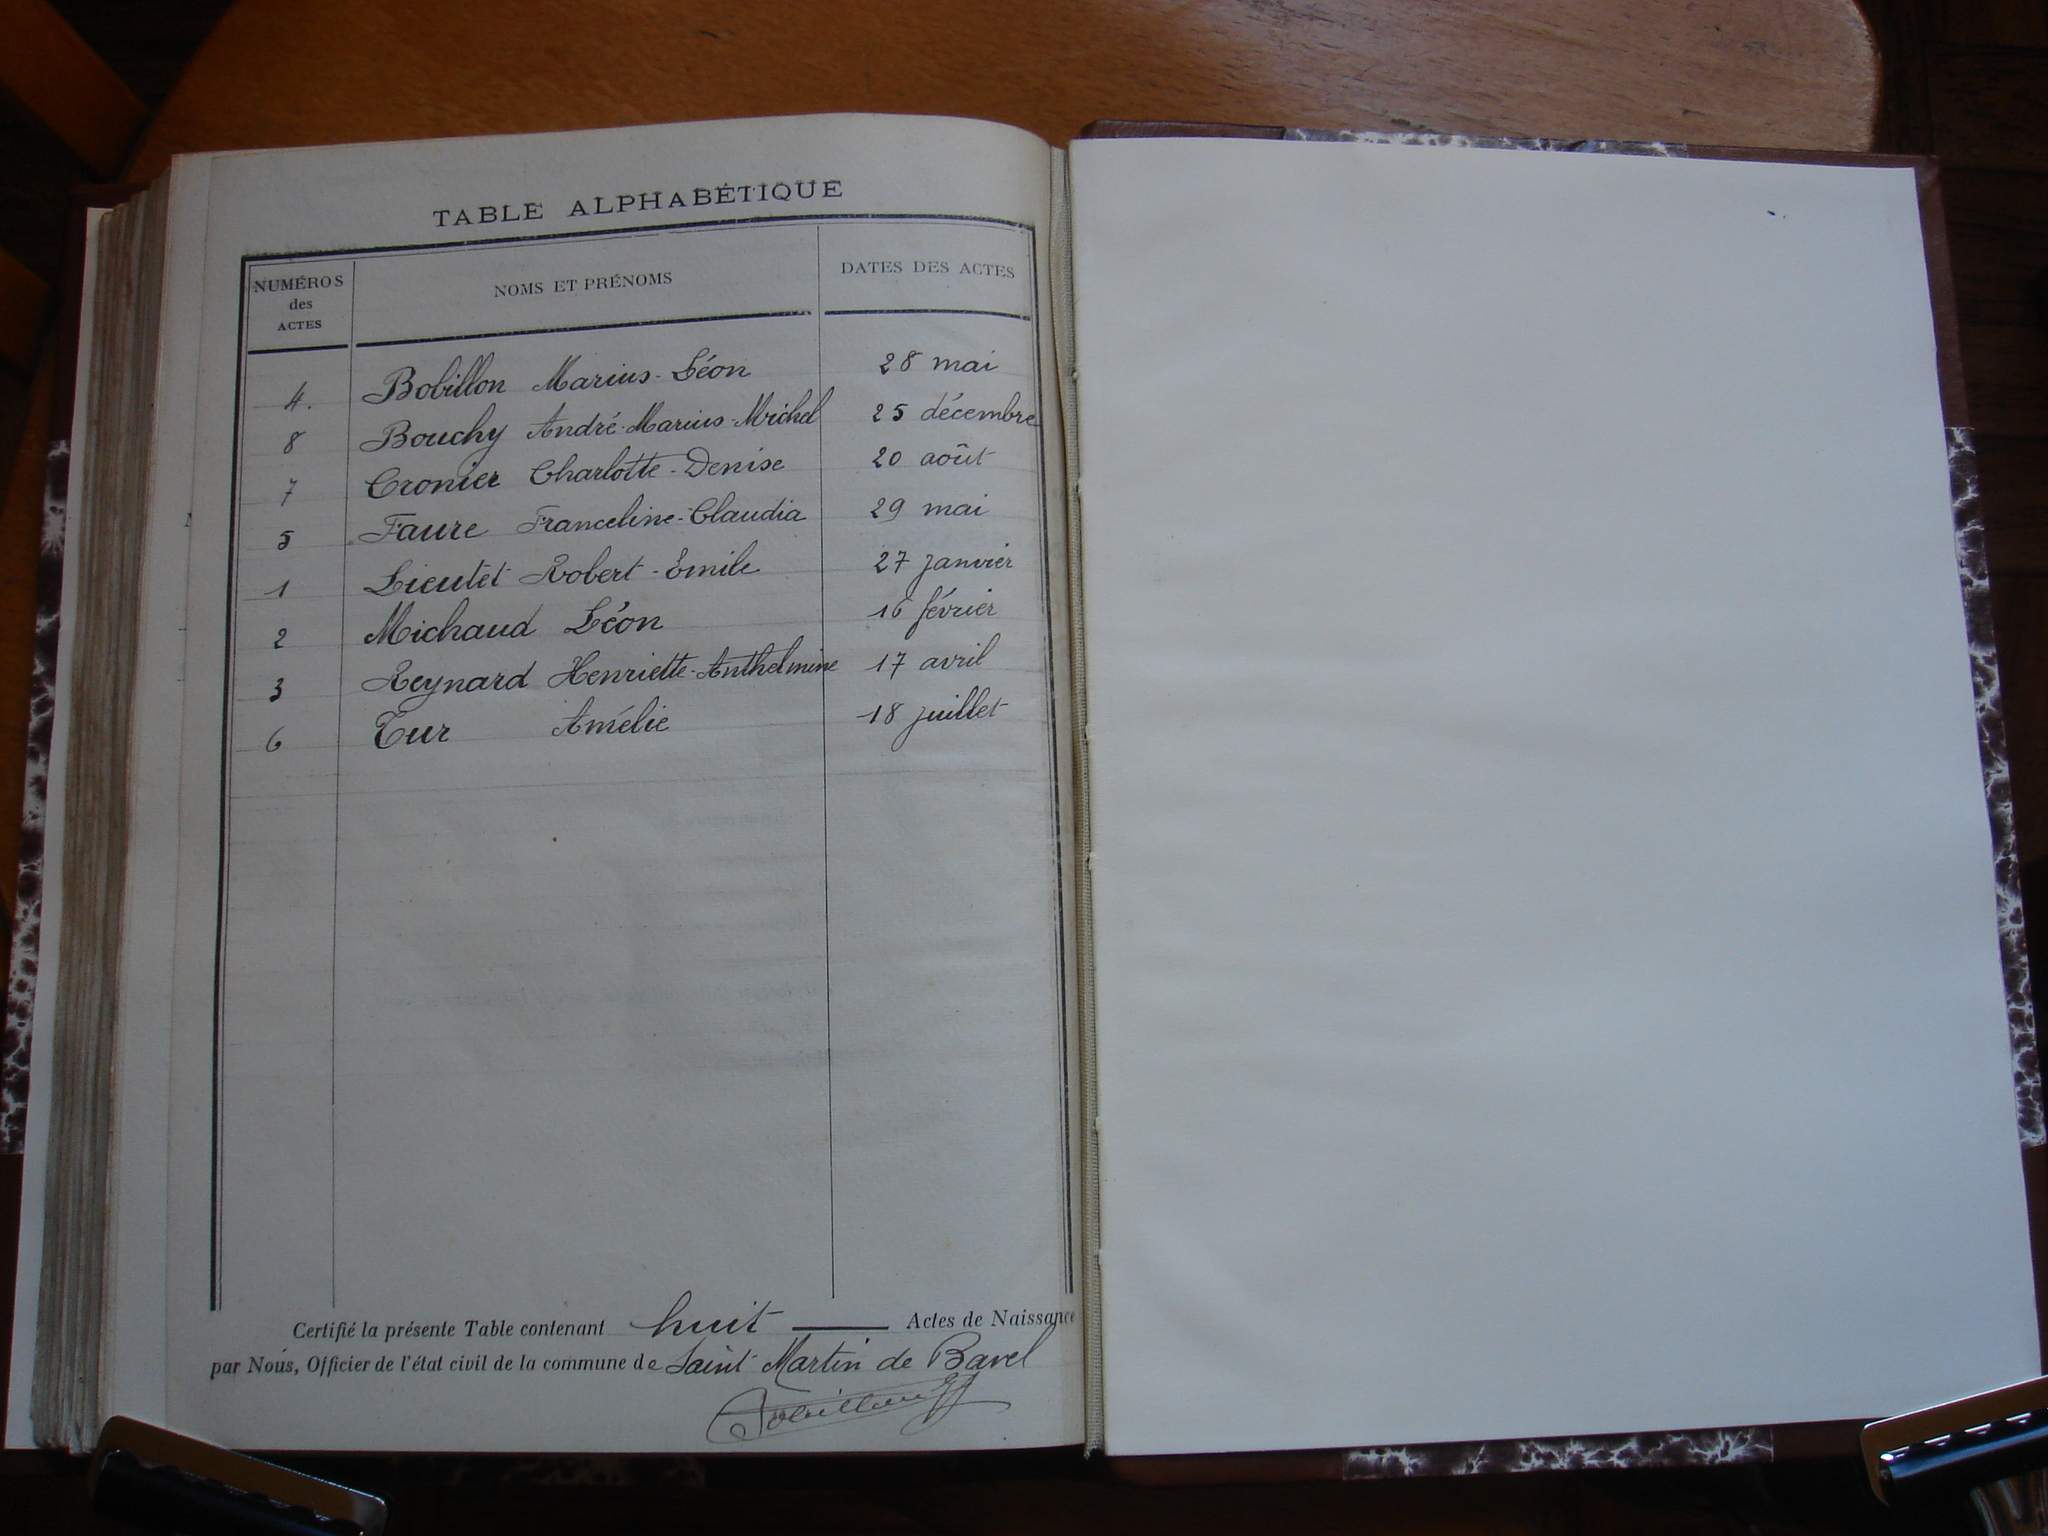 TABLE ALPHABÉTIQUE
NUMÉROS des ACTES NOMS ET PRÉNOMS DATES DES ACTES
4. Bobillon Marius-Léon 28 mai
8 Bouchy André-Marius-Michel 25 décembre
7 Cronier Charlotte-Denise 20 août
5 Faure Franceline-Claudia 29 mai
1 Lieutet Robert-Emile 27 janvier
2 Michaud Léon 16 février
3 Reynard Henriette-Anthelmine 17 avril
6 Tur Amélie 18 juillet
Certifié la présente Table contenant huit Actes de Naissance
par Nous, Officier de l'état civil de la commune de Saint Martin de Bavel